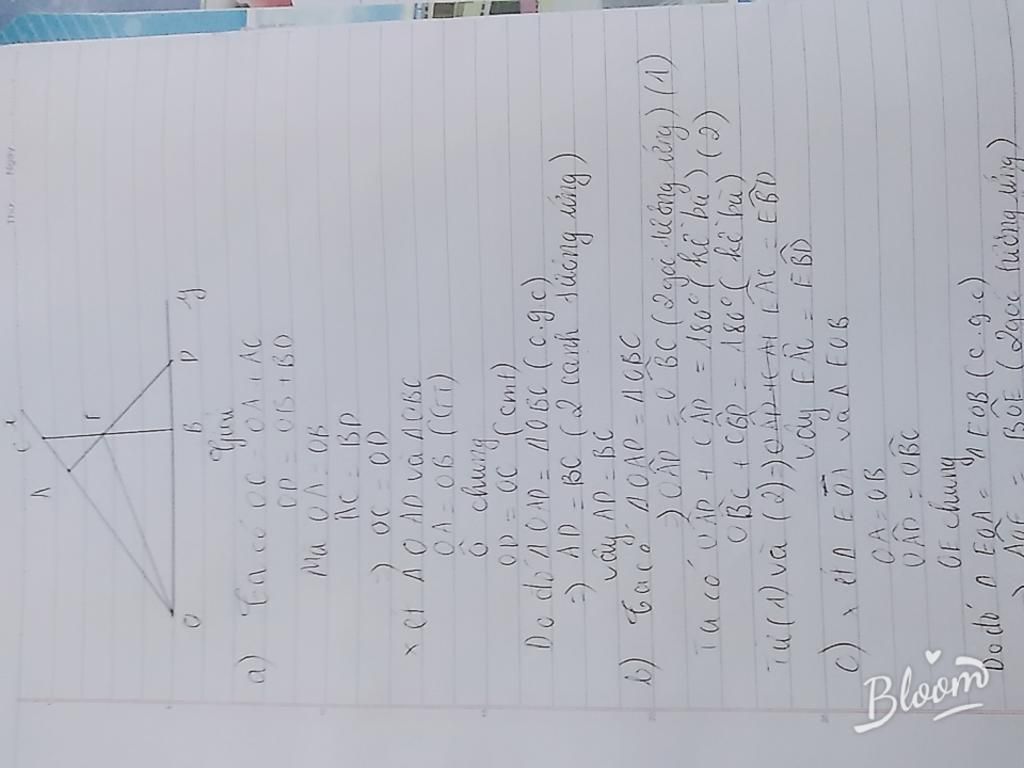 Thứ Ngày
x
C
A
E
O
B
D
y
Giải
a) Ta có OC = OA + AC
OD = OB + BD
Mà OA = OB
AC = BD
=) OC = OD
xét Δ OAD và ΔOBC
OA = OB (GT)
Ô chung
OD = OC (cmt)
Do đó Δ OAD = ΔOBC (c.g.c)
=) AD = BC (2 cạnh tương ứng)
Vây AD = BC
b) Ta có Δ OAD = ΔOBC
=) OÂD = OB̂C (2 góc tương ứng) (1)
Ta có OÂD + CÂD = 180° (kề bù)
OB̂C + CB̂D = 180° (kề bù) (2)
Từ (1) và (2) =) EÂC = EB̂D
Vây EÂC = EB̂D
c) xét Δ EOA và Δ EOB
OA = OB
OÂD = OB̂C
OE chung
Do đó Δ EOA = Δ EOB (c.g.c)
=) AÔE = BÔE (2 góc tương ứng)
Bloom